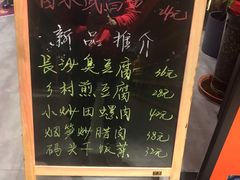 新品推介
长沙臭豆腐 36元
乡村煎豆腐 28元
小炒田螺肉 42元
烟笋炒腊肉 58元
码头干饭菜 32元